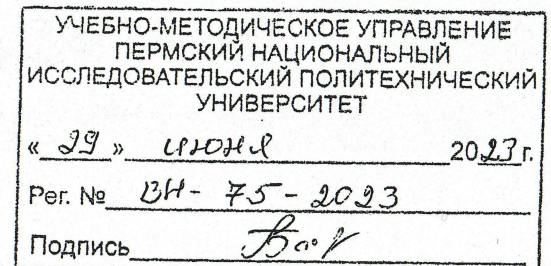 УЧЕБНО-МЕТОДИЧЕСКОЕ УПРАВЛЕНИЕ
ПЕРМСКИЙ НАЦИОНАЛЬНЫЙ
ИССЛЕДОВАТЕЛЬСКИЙ ПОЛИТЕХНИЧЕСКИЙ
УНИВЕРСИТЕТ
«29» июня 2023 г.
Рег. № ВН-75-2023
Подпись